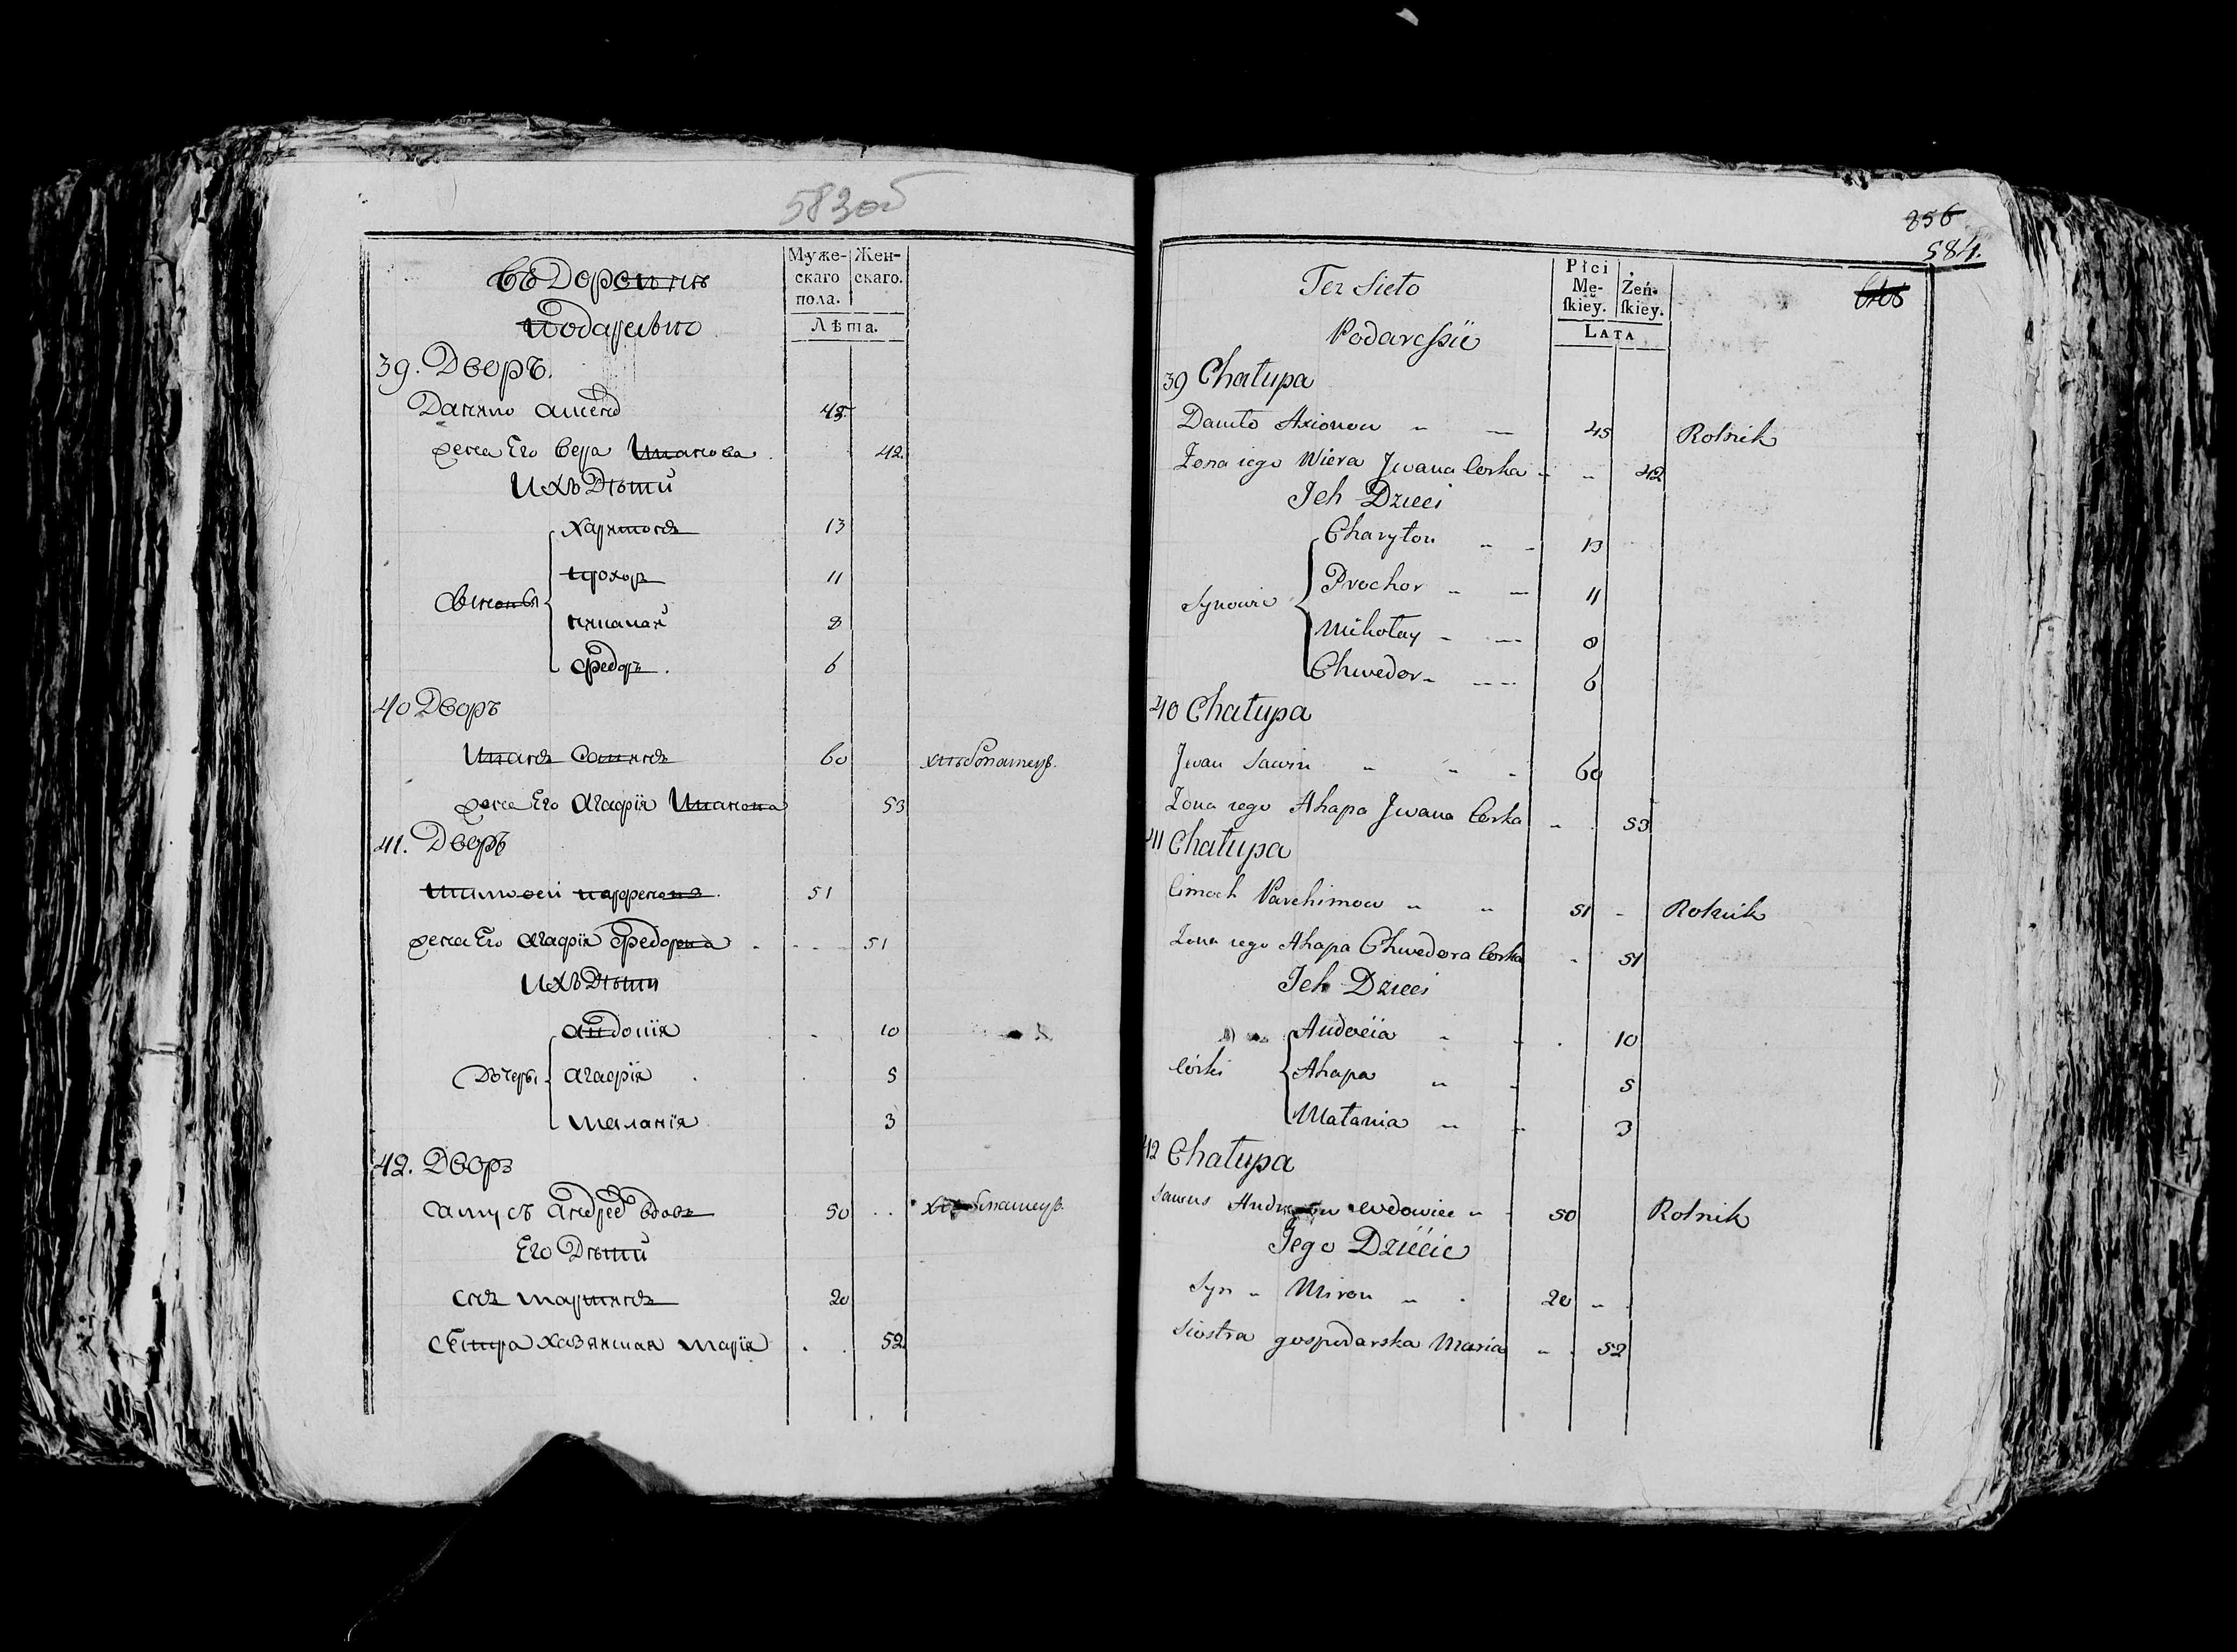 583об
въ Деревнѣ
Подаресью
Муже-
скаго
пола.
Жен-
скаго.
Лѣта.
39. Дворъ.
Данило 45
жена Его Вера Иванова 42
Ихъ Дѣти
Харитонъ 13
Прохоръ 11
Сыновья
Николай 8
Федоръ 6
40 Дворъ
Иванъ Савинъ 60 хлѣбопашецъ
жена Его Агафія Иванова 53
41. Дворъ
Тимофей 51
жена Его Агафія Федорова 51
Ихъ Дѣти
Авдотія 10
Дочери Агафія 5
Маланія 3
42. Дворъ
Андрее вдовъ 50 хлѣбопашецъ
Его Дѣти
сынъ 20
сестра Марія 52
856
584.
Tez Sieło
Podaressie
Płci
Mę-
ſkiey.
Żeń-
ſkiey.
LATA
39 Chałupa
Daniło Axionow 45 Rolnik
Zona iego Wiera Jwana Corka 42
Jch Dzieci
Charyton 13
Prochor 11
Synowie
Mikołay 8
Chwedor 6
40 Chałupa
Jwan Sawin 60
Zona iego Ahapa Jwana Corka 53
41 Chałupa
Cimoch Parchimow 51 Rolnik
Zona iego Ahapa Chwedora Corka 51
Jch Dzieci
Audocia 10
Córki Ahapa 5
Małania 3
42 Chałupa
wdowiec 50 Rolnik
Jego Dziécie
Syn Miron 20
Siostra gospodarska Maria 52